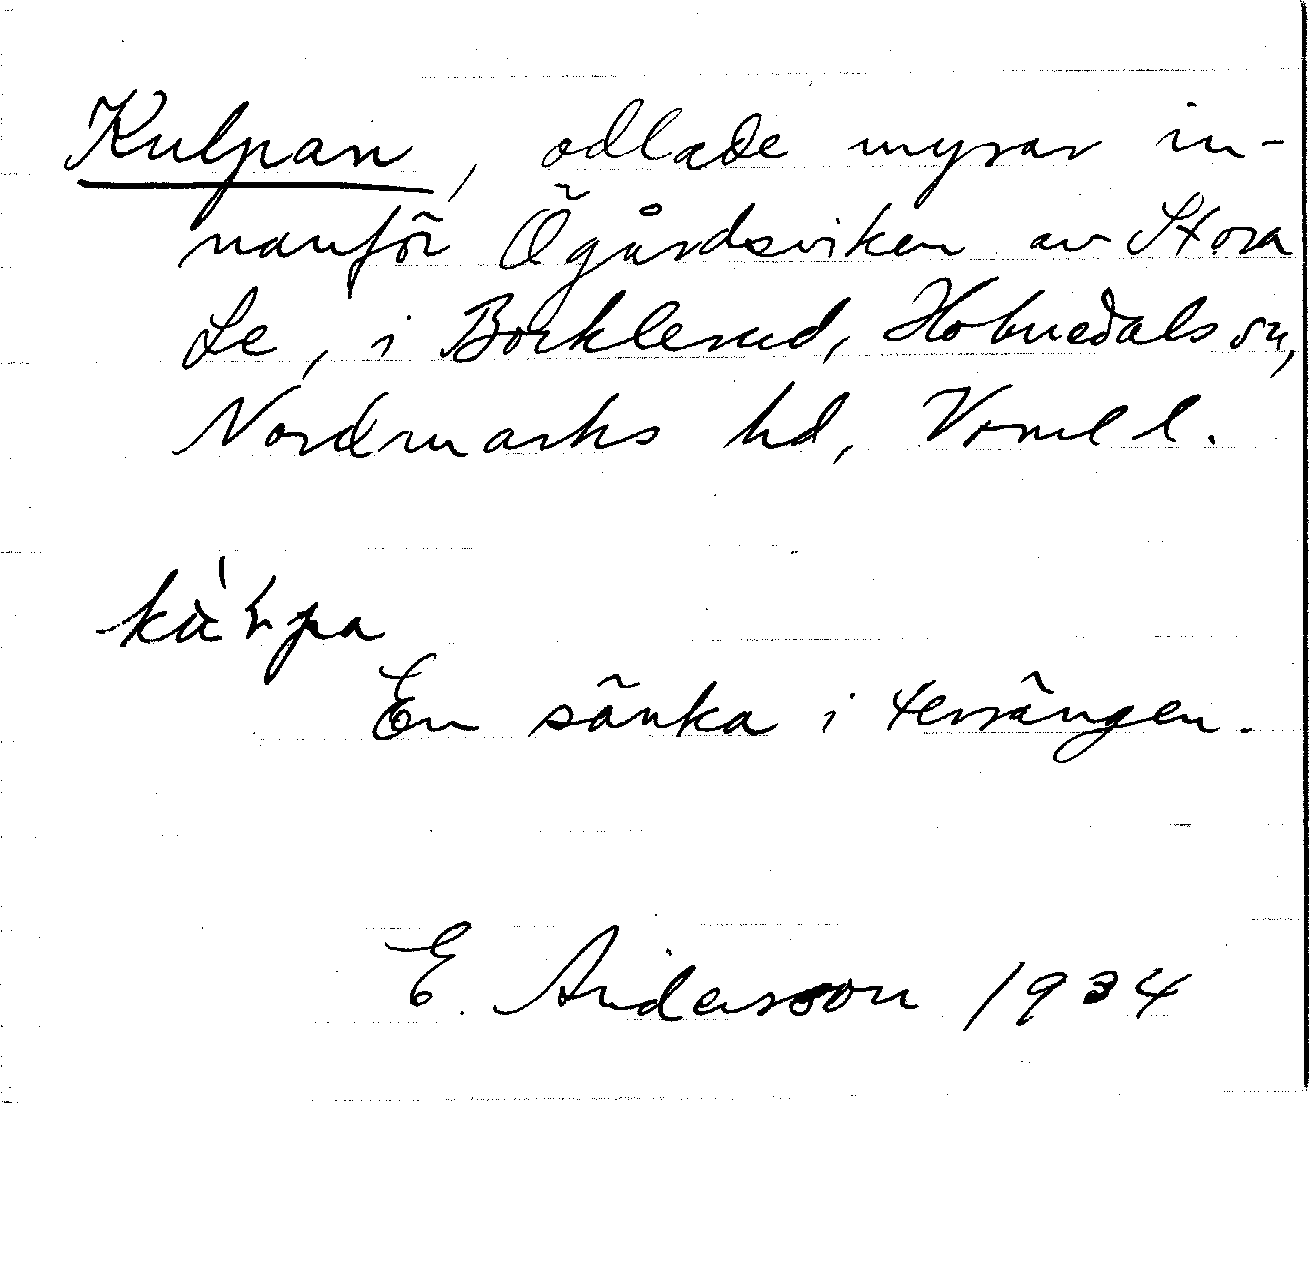 Kulpan, odlade myrar in-
nanför Ögårdsviken av Stora
Le, i Bocklerud, Holmedals sn,
Nordmarks hd, Vrml l.
En sänka i terrängen.
E. Andersson 1934